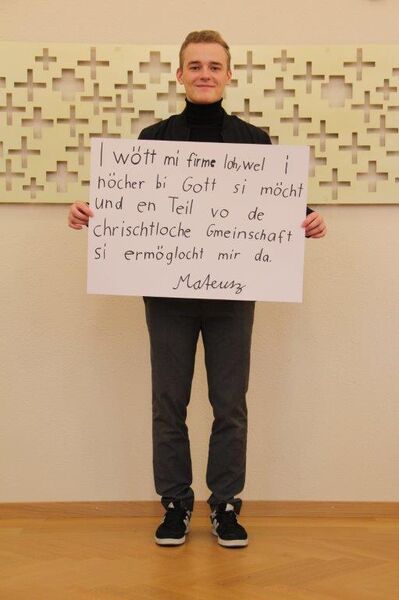 I wött mi firme loh, wel i
höcher bi Gott si möcht
und en Teil vo de
chrischtloche Gmeinschaft
si ermöglocht mir da.
Mateusz